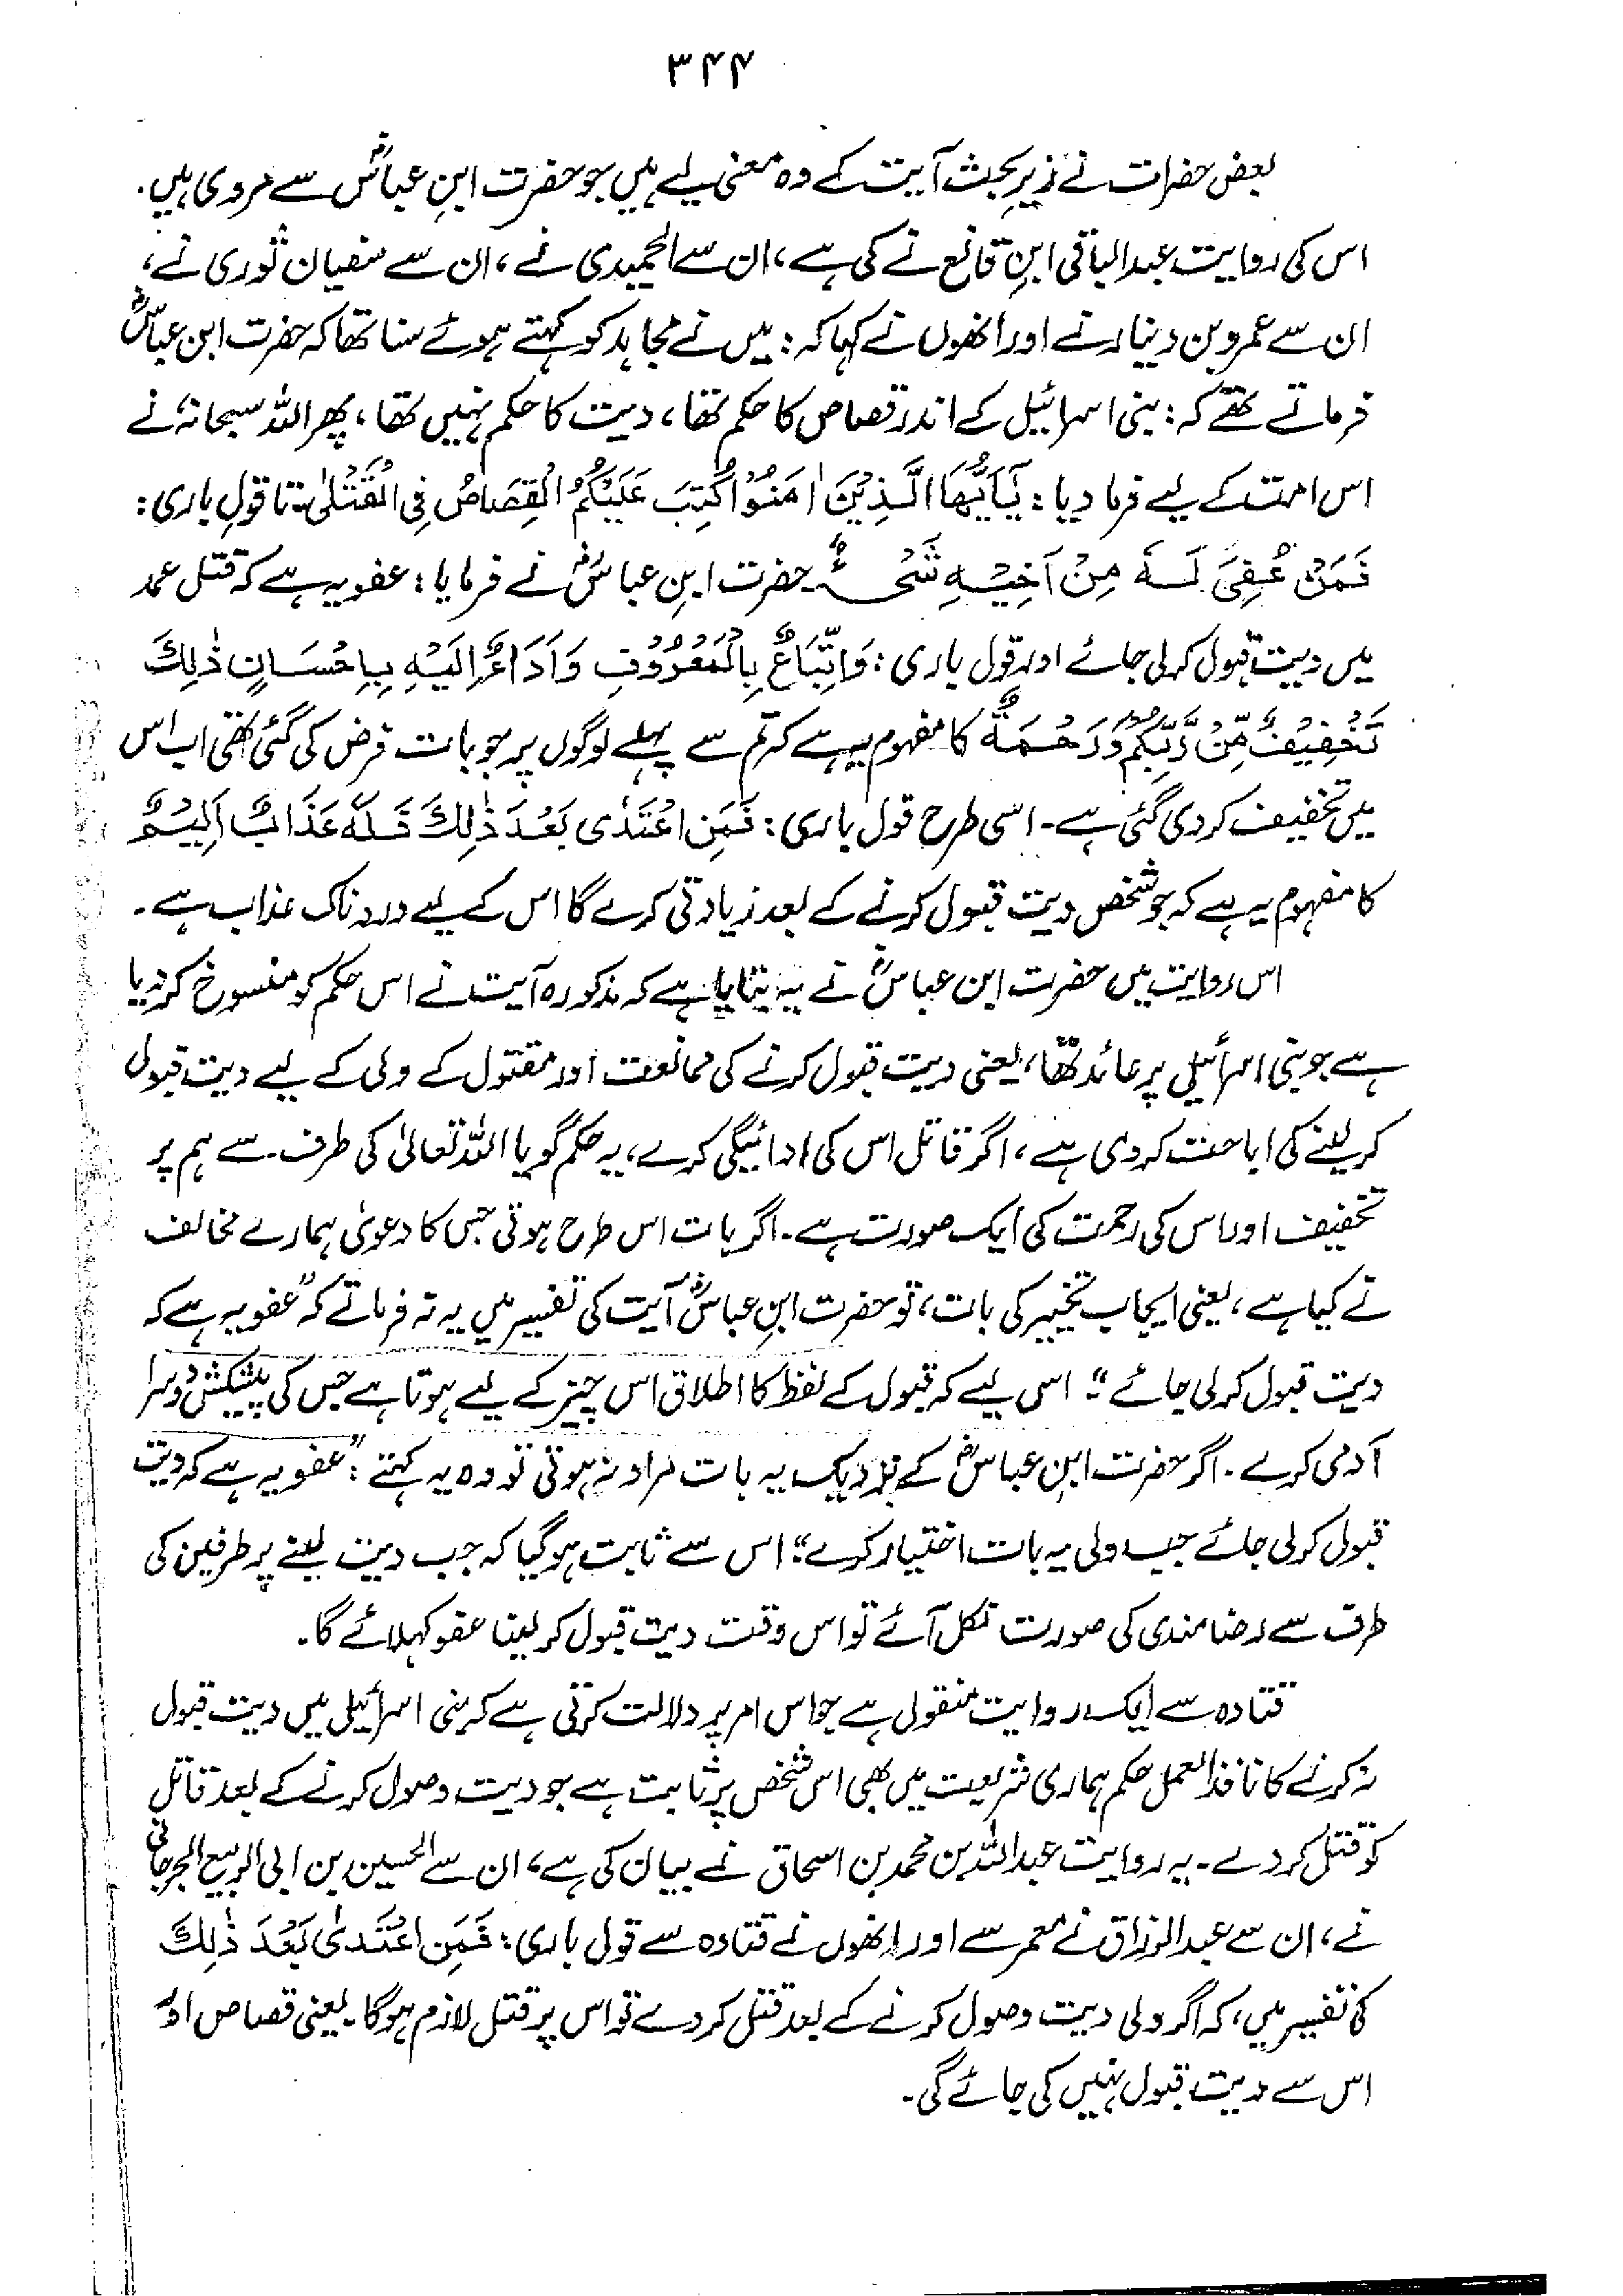 ۳۴۴
بعض حضرات نے زیر بحث آیت کے وہ معنی لیے ہیں جو حضرت ابنِ عباسؓ سے مروی ہیں.
اس کی روایت عبدالباقی ابنِ قانع نے کی ہے، ان سے الحمیدی نے، ان سے سفیان ثوری نے،
ان سے عمرو بن دینار نے اور انھوں نے کہا کہ: میں نے مجاہد کو کہتے ہوئے سنا تھا کہ حضرت ابن عباسؓ
فرماتے تھے کہ: بنی اسرائیل کے اندر قصاص کا حکم تھا، دیت کا حکم نہیں تھا، پھر اللہ سبحانہٗ نے
اس امت کے لیے فرما دیا: یٰۤاَیُّهَا الَّذِیْنَ اٰمَنُوْا كُتِبَ عَلَیْكُمُ الْقِصَاصُ فِی الْقَتْلٰى تا قولِ باری:
فَمَنْ عُفِیَ لَهٗ مِنْ اَخِیْهِ شَیْءٌ۔ حضرت ابنِ عباسؓ نے فرمایا: عفو یہ ہے کہ قتل عمد
میں دیت قبول کرلی جائے اور قول باری: وَاتِّبَاعٌ بِالْمَعْرُوْفِ وَاَدَآءٌ اِلَیْهِ بِاِحْسَانٍ ذٰلِكَ
تَخْفِیْفٌ مِّنْ رَّبِّكُمْ وَرَحْمَةٌ کا مفہوم یہ ہے کہ تم سے پہلے لوگوں پر جو بات فرض کی گئی تھی اب اس
میں تخفیف کردی گئی ہے۔ اسی طرح قول باری: فَمَنِ اعْتَدٰى بَعْدَ ذٰلِكَ فَلَهٗ عَذَابٌ اَلِیْمٌ
کا مفہوم یہ ہے کہ جو شخص دیت قبول کرنے کے بعد زیادتی کرے گا اس کے لیے دردناک عذاب ہے۔
اس روایت میں حضرت ابن عباسؓ نے یہ بتایا ہے کہ مذکورہ آیت نے اس حکم کو منسوخ کردیا
ہے جو بنی اسرائیل پر عائد تھا، یعنی دیت قبول کرنے کی ممانعت اور مقتول کے ولی کے لیے دیت قبول
کرلینے کی اباحت کردی ہے، اگر قاتل اس کی ادائیگی کرے، یہ حکم گویا اللہ تعالیٰ کی طرف سے ہم پر
تخفیف اور اس کی رحمت کی ایک صورت ہے۔ اگر بات اس طرح ہوتی جس کا دعویٰ ہمارے مخالف
نے کیا ہے، یعنی ایجاب تخییر کی بات، تو حضرت ابنِ عباسؓ آیت کی تفسیر میں یہ نہ فرماتے کہ "عفو یہ ہے کہ
دیت قبول کرلی جائے"۔ اسی لیے کہ قبول کے لفظ کا اطلاق اس چیز کے لیے ہوتا ہے جس کی پیشکش دوسرا
آدمی کرے۔ اگر حضرت ابنِ عباسؓ کے نزدیک یہ بات مراد نہ ہوتی تو وہ یہ کہتے: "عفو یہ ہے کہ دیت
قبول کرلی جائے جب ولی یہ بات اختیار کرے"۔ اس سے ثابت ہوگیا کہ جب دیت لینے پر طرفین کی
طرف سے رضامندی کی صورت نکل آئے تو اس وقت دیت قبول کرلینا عفو کہلائے گا۔
قتادہ سے ایک روایت منقول ہے جو اس امر پر دلالت کرتی ہے کہ بنی اسرائیل میں دیت قبول
نہ کرنے کا نافذ العمل حکم ہماری شریعت میں بھی اس شخص پر ثابت ہے جو دیت وصول کرنے کے بعد قاتل
کو قتل کردے۔ یہ روایت عبداللہ بن محمد بن اسحاق نے بیان کی ہے، ان سے الحسین بن ابی الربیع الجرجانی
نے، ان سے عبدالرزاق نے معمر سے اور انھوں نے قتادہ سے قول باری: فَمَنِ اعْتَدٰى بَعْدَ ذٰلِكَ
کی تفسیر میں، کہ اگر ولی دیت وصول کرنے کے بعد قتل کردے تو اس پر قتل لازم ہوگا۔ یعنی قصاص اور
اس سے دیت قبول نہیں کی جائے گی۔